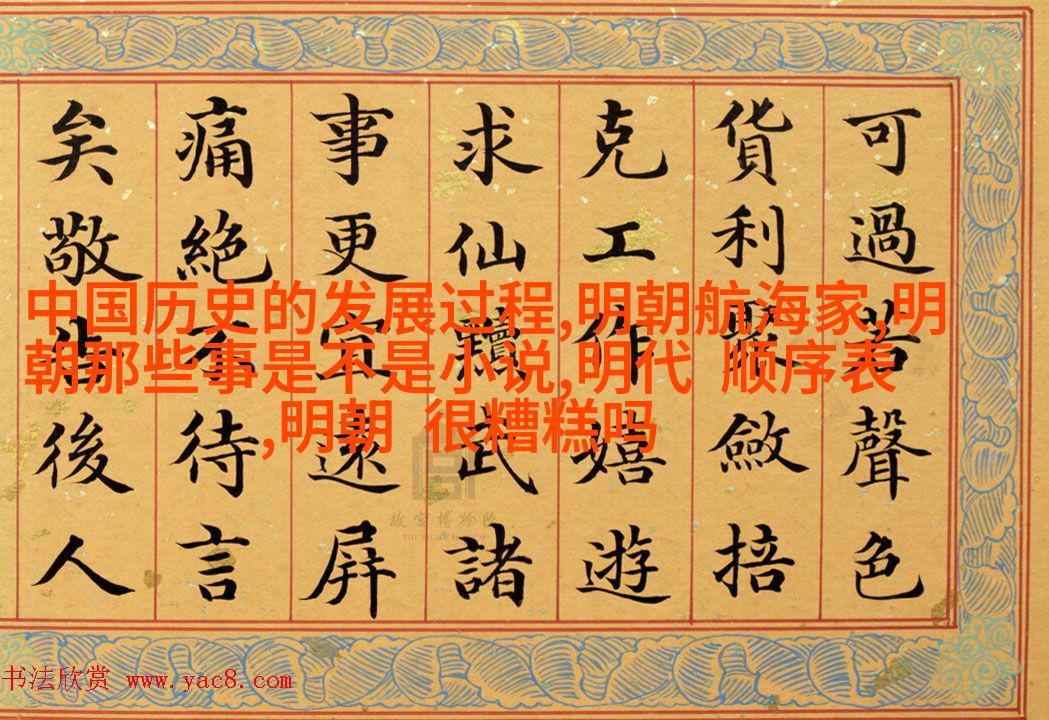 可過若聲色
貨利聚斂掊
克工作嬉遊
求仙黷武諸
事更宜遠屏
痛絕不待言
矣敬告後人
中国历史的发展过程,明朝航海家,明
朝那些事是不是小说,明代 顺序表
,明朝 很糟糕吗
故宫博物院
书法欣赏 www.yac8.com